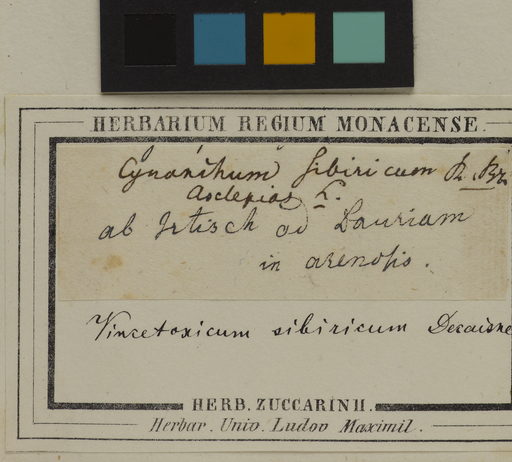 HERBARIUM REGIUM MONACENSE
Cynanchum sibiricum R. Br.
Asclepias L.
ab Irtisch ad Dauriam
in arenosis.
Vincetoxicum sibiricum Decaisne
HERB. ZUCCARINII.
Herbar. Univ. Ludov Maximil.